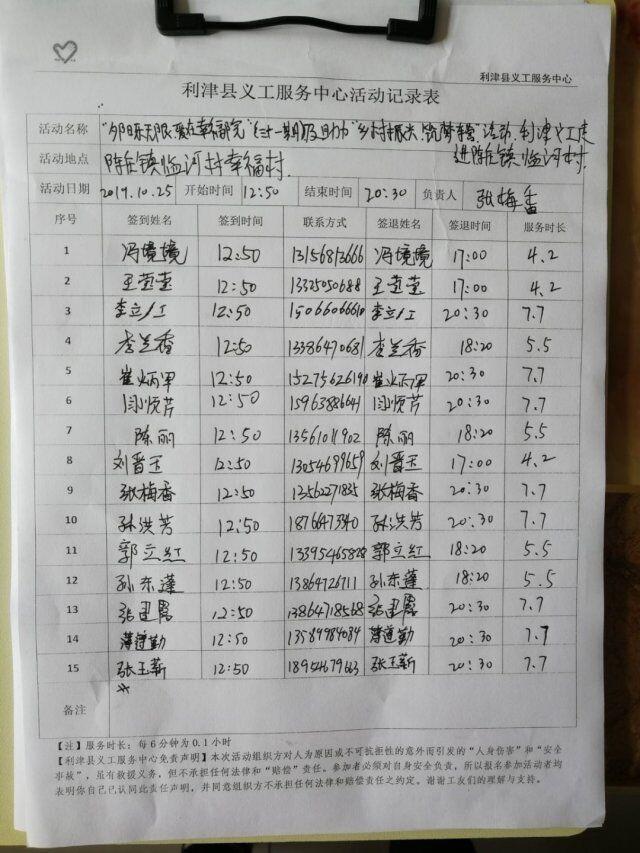 利津县义工服务中心
利津县义工服务中心活动记录表
活动名称 “邻里 活动.利津义工走
活动地点 陈庄镇临河村幸福村. 进陈庄镇临河村.
活动日期 2019.10.25 开始时间 12:50 结束时间 20:30 负责人 张梅香
序号 签到姓名 签到时间 联系方式 签退姓名 签退时间 服务时长
1 冯境境 12:50 13156812666 冯境境 17:00 4.2
2 王莹莹 12:50 13325050688 王莹莹 17:00 4.2
3 李立江 12:50 15066066610 李立江 20:30 7.7
4 李兰香 12:50 13386470681 李兰香 18:20 5.5
5 崔炳甲 12:50 15275626190 崔炳甲 20:30 7.7
6 闫悦芹 12:50 15963886641 闫悦芹 20:30 7.7
7 陈丽 12:50 13561011902 陈丽 18:20 5.5
8 刘晋玉 12:50 13054699659 刘晋玉 17:00 4.2
9 张梅香 12:50 13562271835 张梅香 20:30 7.7
10 孙洪芳 12:50 孙洪芳 20:30 7.7
11 郭立红 12:50 13395465828 郭立红 18:20 5.5
12 孙东蓬 12:50 13864726711 孙东蓬 18:20 5.5
13 张建霞 12:50 13864718568 张建霞 20:30 7.7
14 薄道勤 12:50 13589984034 薄道勤 20:30 7.7
15 张玉薪 12:50 18954679663 张玉薪 20:30 7.7
备注
【注】服务时长：每6分钟为0.1小时
【利津县义工服务中心免责声明】本次活动组织方对人为原因或不可抗拒性的意外而引发的“人身伤害”和“安全
事故”，虽有救援义务，但不承担任何法律和“赔偿”责任。参加者必须对自身安全负责，所以报名参加活动者均
表明你自己已认同此责任声明，并同意组织方不承担任何法律和赔偿责任之约定。谢谢工友们的理解与支持。